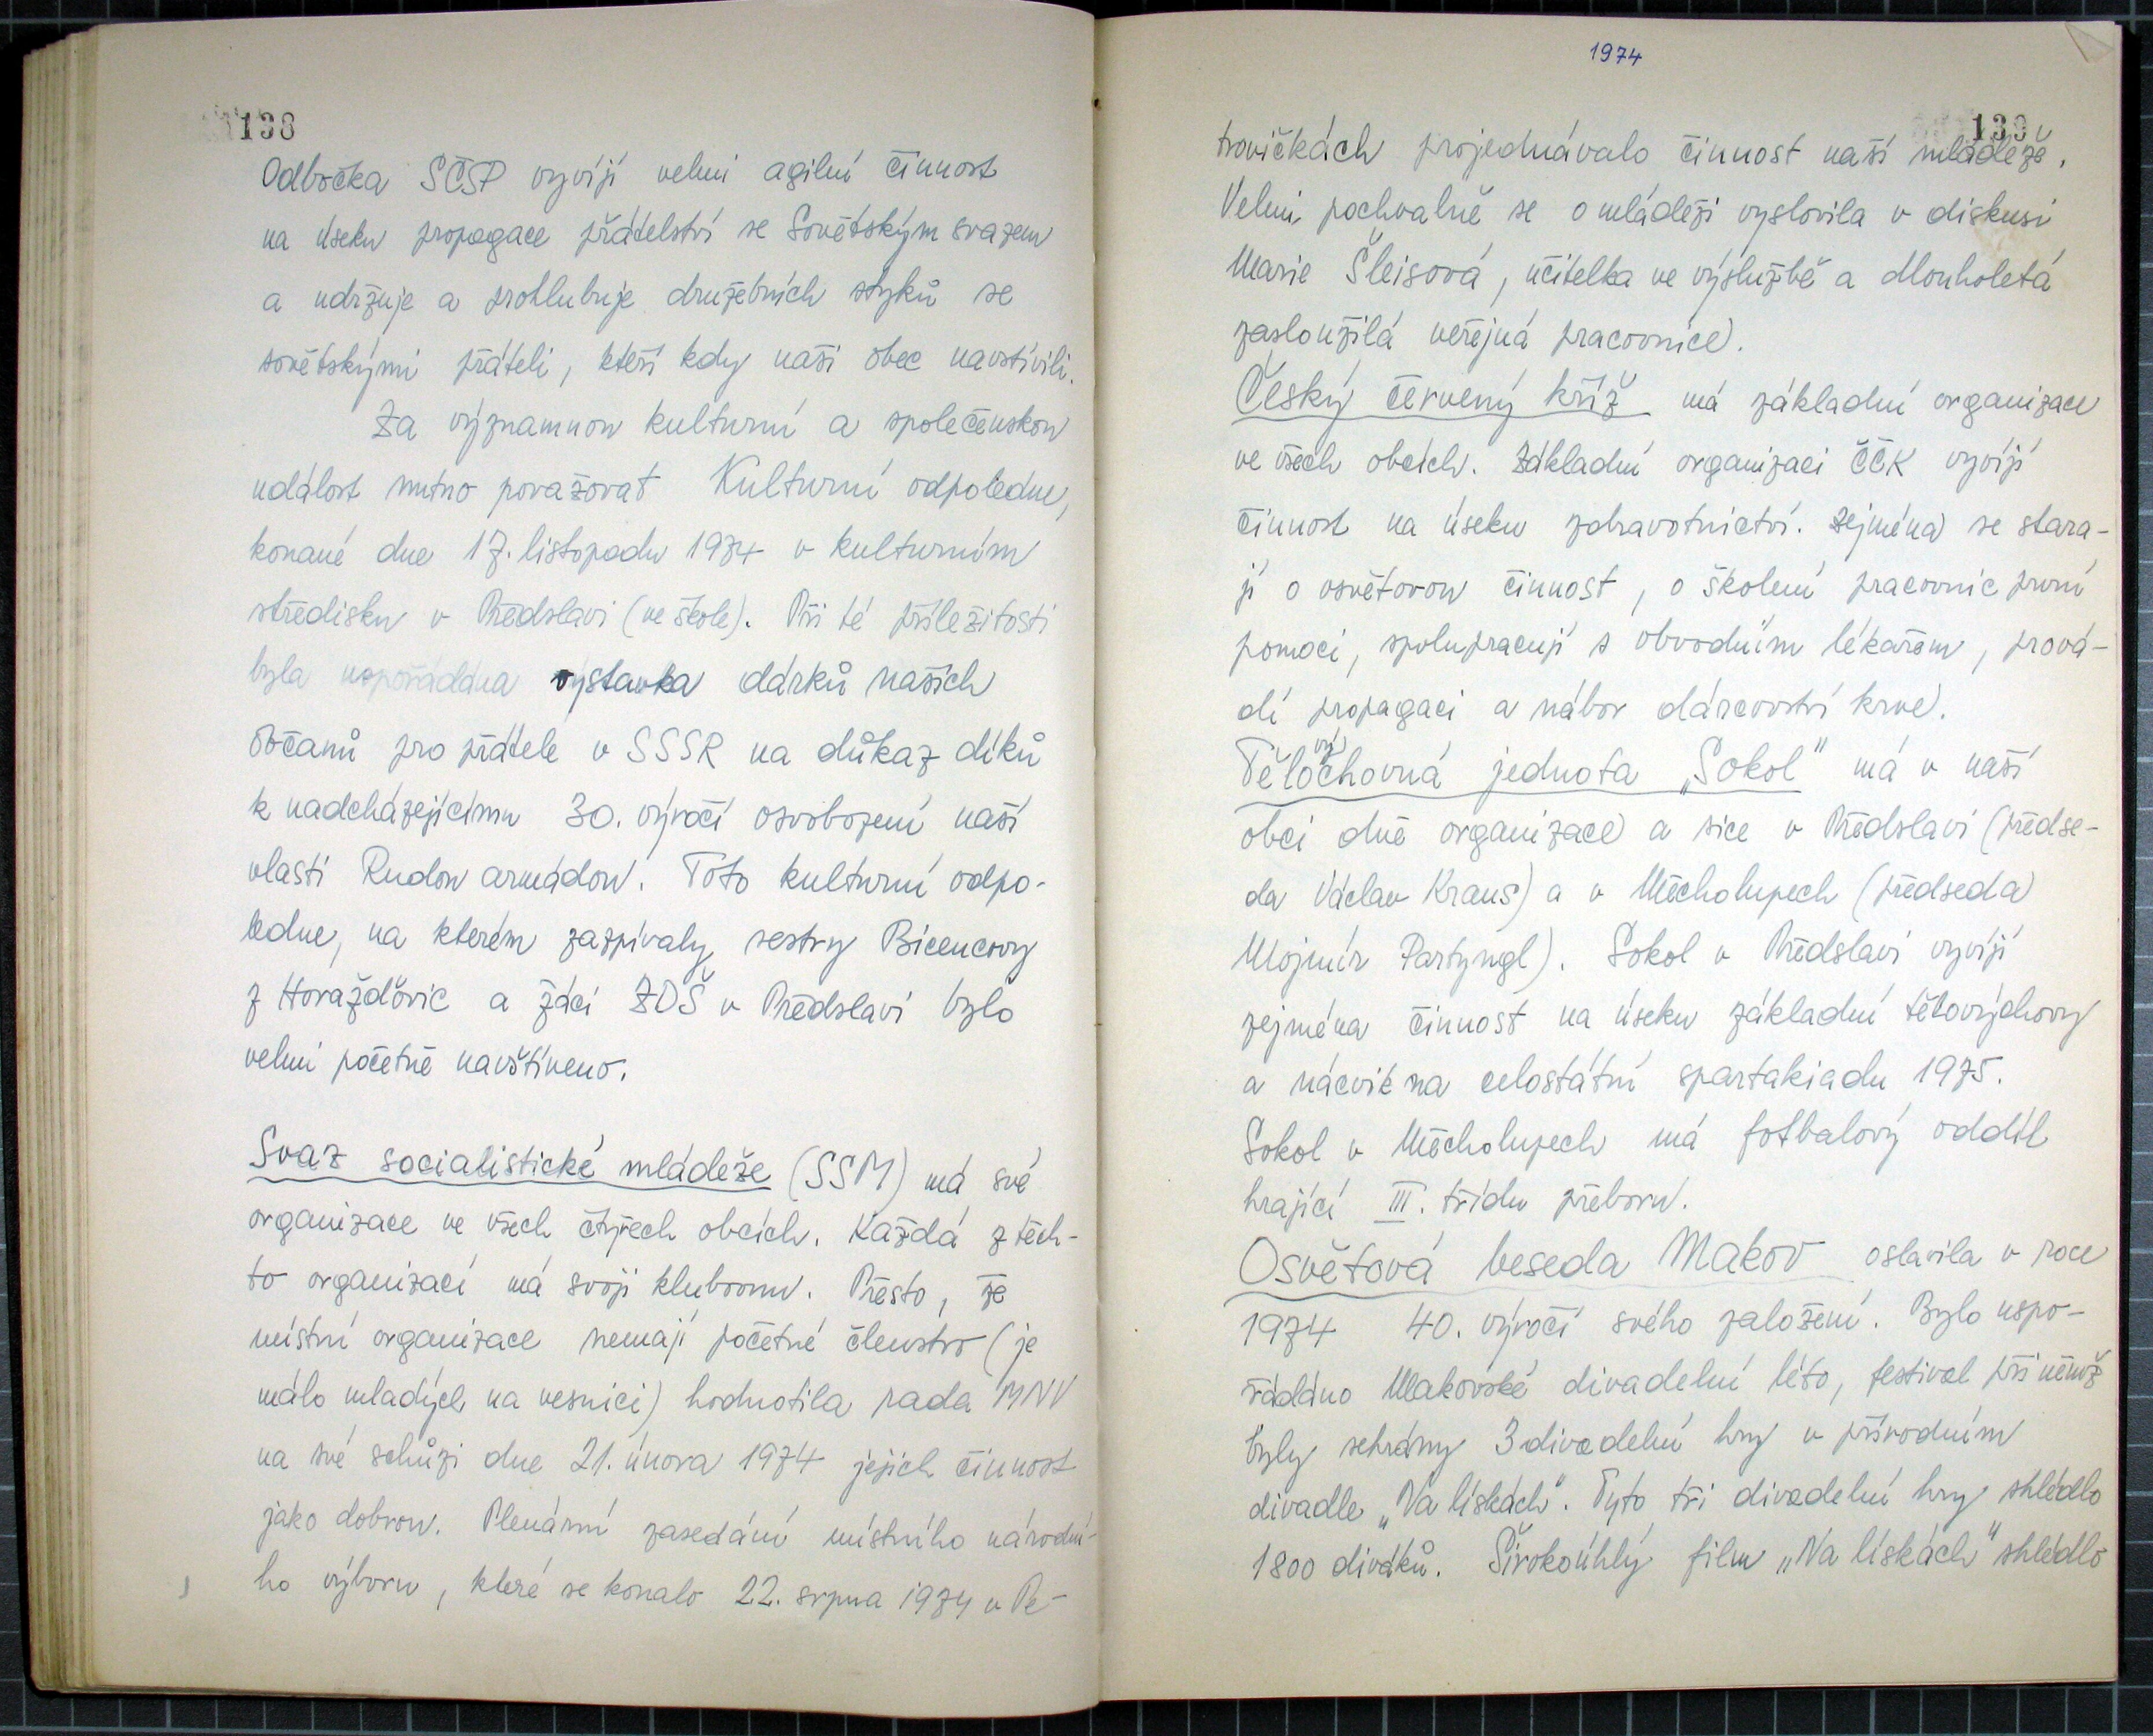 138
Odbočka SČSP vyvíjí velmi agilní činnost
na úseku propagace přátelství se Sovětským svazem
a udržuje a prohlubuje družebních styků se
sovětskými přáteli, kteří kdy naši obec navštívili.
Za významnou kulturní a společenskou
událost nutno považovat Kulturní odpoledne,
konané dne 17. listopadu 1974 v kulturním
středisku v Předslavi (ve škole). Při té příležitosti
byla uspořádána výstavka dárků našich
občanů pro přátele v SSSR na důkaz díků
k nadcházejícímu 30. výročí osvobození naší
vlasti Rudou armádou. Toto kulturní odpo-
ledne, na kterém zazpívaly sestry Bicencovy
z Horažďovic a žáci ZDŠ v Předslavi bylo
velmi početně navštíveno.
Svaz socialistické mládeže (SSM) má své
organizace ve všech čtyřech obcích. Každá z těch-
to organizací má svoji klubovnu. Přesto, že
místní organizace nemají početné členstvo (je
málo mladých na vesnici) hodnotila rada MNV
na své schůzi dne 21. února 1974 jejich činnost
jako dobrou. Plenární zasedání místního národní-
ho výboru, které se konalo 22. srpna 1974 v Pe-
1974
139
trovičkách projednávalo činnost naší mládeže.
Velmi pochvalně se o mládeži vyslovila v diskusi
Marie Šleisová, učitelka ve výslužbě a dlouholetá
zasloužilá veřejná pracovnice.
Český červený kříž má základní organizace
ve všech obcích. Základní organizaci ČČK vyvíjí
činnost na úseku zdravotnictví. Zejména se stara-
jí o osvětovou činnost, o školení pracovnic první
pomoci, spolupracují s obvodním lékařem, prová-
dí propagaci a nábor dárcovství krve.
Tělovýchovná jednota „Sokol" má v naší
obci dvě organizace a sice v Předslavi (předse-
da Václav Kraus) a v Měcholupech (předseda
Mojmír Partyngl). Sokol v Předslavi vyvíjí
zejména činnost na úseku základní tělovýchovy
a nácvik na celostátní spartakiadu 1975.
Sokol v Měcholupech má fotbalový oddíl
hrající III. třídu přeboru.
Osvětová beseda Makov oslavila v roce
1974 40. výročí svého založení. Bylo uspo-
řádáno Makovské divadelní léto, festival při němž
byly sehrány 3 divadelní hry v přírodním
divadle „Na lískách". Tyto tři divadelní hry shlédlo
1800 diváků. Širokoúhlý film „Na lískách" shlédlo